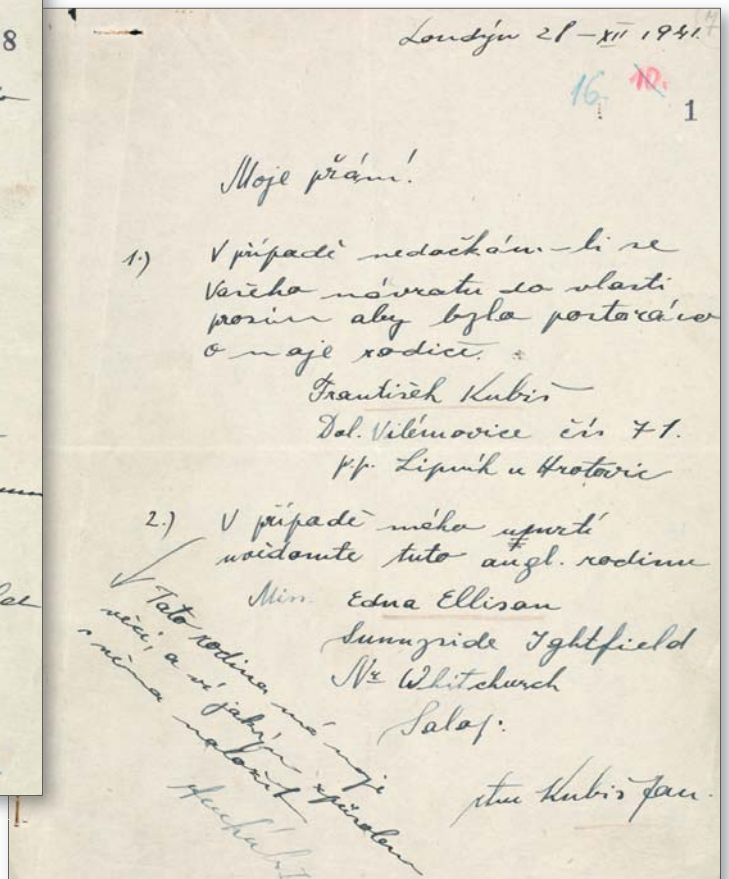 8
Londýn 28 – XII 1941.
16. 10.
1
Moje přání!
1.) V případě nedočkám-li se
Vašeho návratu do vlasti
prosím aby bylo postaráno
o moje rodiče.
František Kubiš
Dol. Vilémovice čís 71.
p.p. Lipník u Hrotovic
2.) V případě mého úmrtí
uvědomte tuto angl. rodinu
Miss. Edna Ellison
Sunnyside Ightfield
Nr Whitchurch
Salop.
Tato rodina má moje
věci, a ví jakým způsobem
s něma naložit
rtm Kubiš Jan.